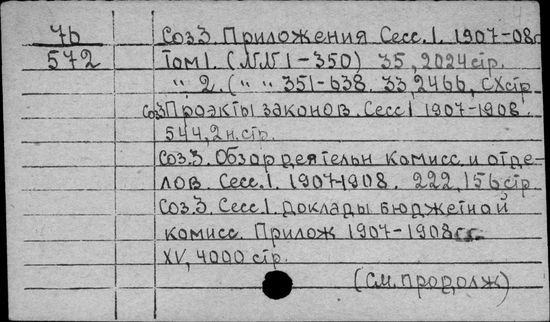 7b
572
Соз.3. Приложения Сесс.1. 1907-08г
Том 1. (№№ 1-350) 35, 2024 стр.
" 2. ( " " 351-638. 33, 2466, CX стр
Соз3 Проэкты законов. Сесс 1 1907-1908.
544, 2 н. стр.
Соз.3. Обзор деятельн комисс. и отде-
лов. Сесс.1. 1907-1908. 222, 156, стр
Соз.3. Сесс.1. Доклады бюджетной
комисс. Прилож 1907-1908гг.
XV, 4000 стр.
(См. продолж)